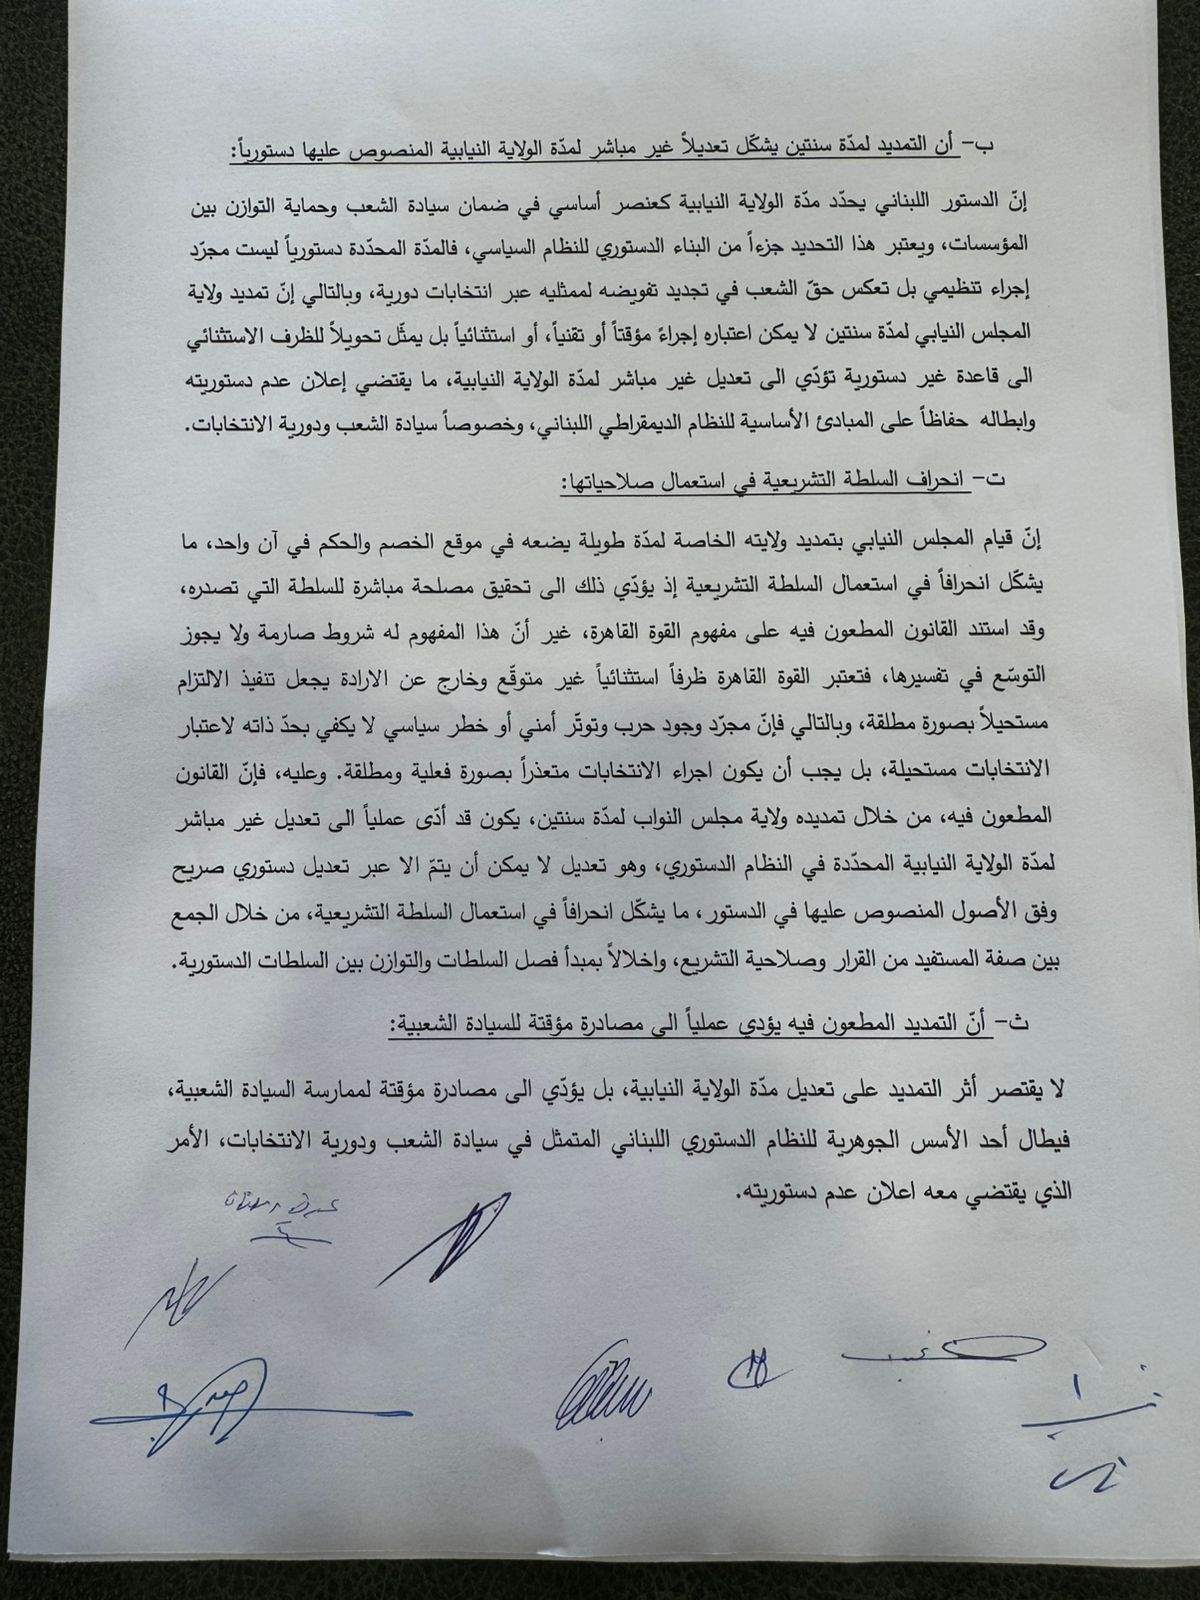 ب- أن التمديد لمدّة سنتين يشكّل تعديلاً غير مباشر لمدّة الولاية النيابية المنصوص عليها دستورياً:
إنّ الدستور اللبناني يحدّد مدّة الولاية النيابية كعنصر أساسي في ضمان سيادة الشعب وحماية التوازن بين
المؤسسات، ويعتبر هذا التحديد جزءاً من البناء الدستوري للنظام السياسي، فالمدّة المحدّدة دستورياً ليست مجرّد
إجراء تنظيمي بل تعكس حقّ الشعب في تجديد تفويضه لممثليه عبر انتخابات دورية، وبالتالي إنّ تمديد ولاية
المجلس النيابي لمدّة سنتين لا يمكن اعتباره إجراءً مؤقتاً أو تقنياً، أو استثنائياً بل يمثّل تحويلاً للظرف الاستثنائي
الى قاعدة غير دستورية تؤدّي الى تعديل غير مباشر لمدّة الولاية النيابية، ما يقتضي إعلان عدم دستوريته
وابطاله حفاظاً على المبادئ الأساسية للنظام الديمقراطي اللبناني، وخصوصاً سيادة الشعب ودورية الانتخابات.
ت- انحراف السلطة التشريعية في استعمال صلاحياتها:
إنّ قيام المجلس النيابي بتمديد ولايته الخاصة لمدّة طويلة يضعه في موقع الخصم والحكم في آن واحد، ما
يشكّل انحرافاً في استعمال السلطة التشريعية إذ يؤدّي ذلك الى تحقيق مصلحة مباشرة للسلطة التي تصدره،
وقد استند القانون المطعون فيه على مفهوم القوة القاهرة، غير أنّ هذا المفهوم له شروط صارمة ولا يجوز
التوسّع في تفسيرها، فتعتبر القوة القاهرة ظرفاً استثنائياً غير متوقّع وخارج عن الارادة يجعل تنفيذ الالتزام
مستحيلاً بصورة مطلقة، وبالتالي فإنّ مجرّد وجود حرب وتوتّر أمني أو خطر سياسي لا يكفي بحدّ ذاته لاعتبار
الانتخابات مستحيلة، بل يجب أن يكون اجراء الانتخابات متعذراً بصورة فعلية ومطلقة. وعليه، فإنّ القانون
المطعون فيه، من خلال تمديده ولاية مجلس النواب لمدّة سنتين، يكون قد أدّى عملياً الى تعديل غير مباشر
لمدّة الولاية النيابية المحدّدة في النظام الدستوري، وهو تعديل لا يمكن أن يتمّ الا عبر تعديل دستوري صريح
وفق الأصول المنصوص عليها في الدستور، ما يشكّل انحرافاً في استعمال السلطة التشريعية، من خلال الجمع
بين صفة المستفيد من القرار وصلاحية التشريع، واخلالاً بمبدأ فصل السلطات والتوازن بين السلطات الدستورية.
ث- أنّ التمديد المطعون فيه يؤدي عملياً الى مصادرة مؤقتة للسيادة الشعبية:
لا يقتصر أثر التمديد على تعديل مدّة الولاية النيابية، بل يؤدّي الى مصادرة مؤقتة لممارسة السيادة الشعبية،
فيطال أحد الأسس الجوهرية للنظام الدستوري اللبناني المتمثل في سيادة الشعب ودورية الانتخابات، الأمر
الذي يقتضي معه اعلان عدم دستوريته.